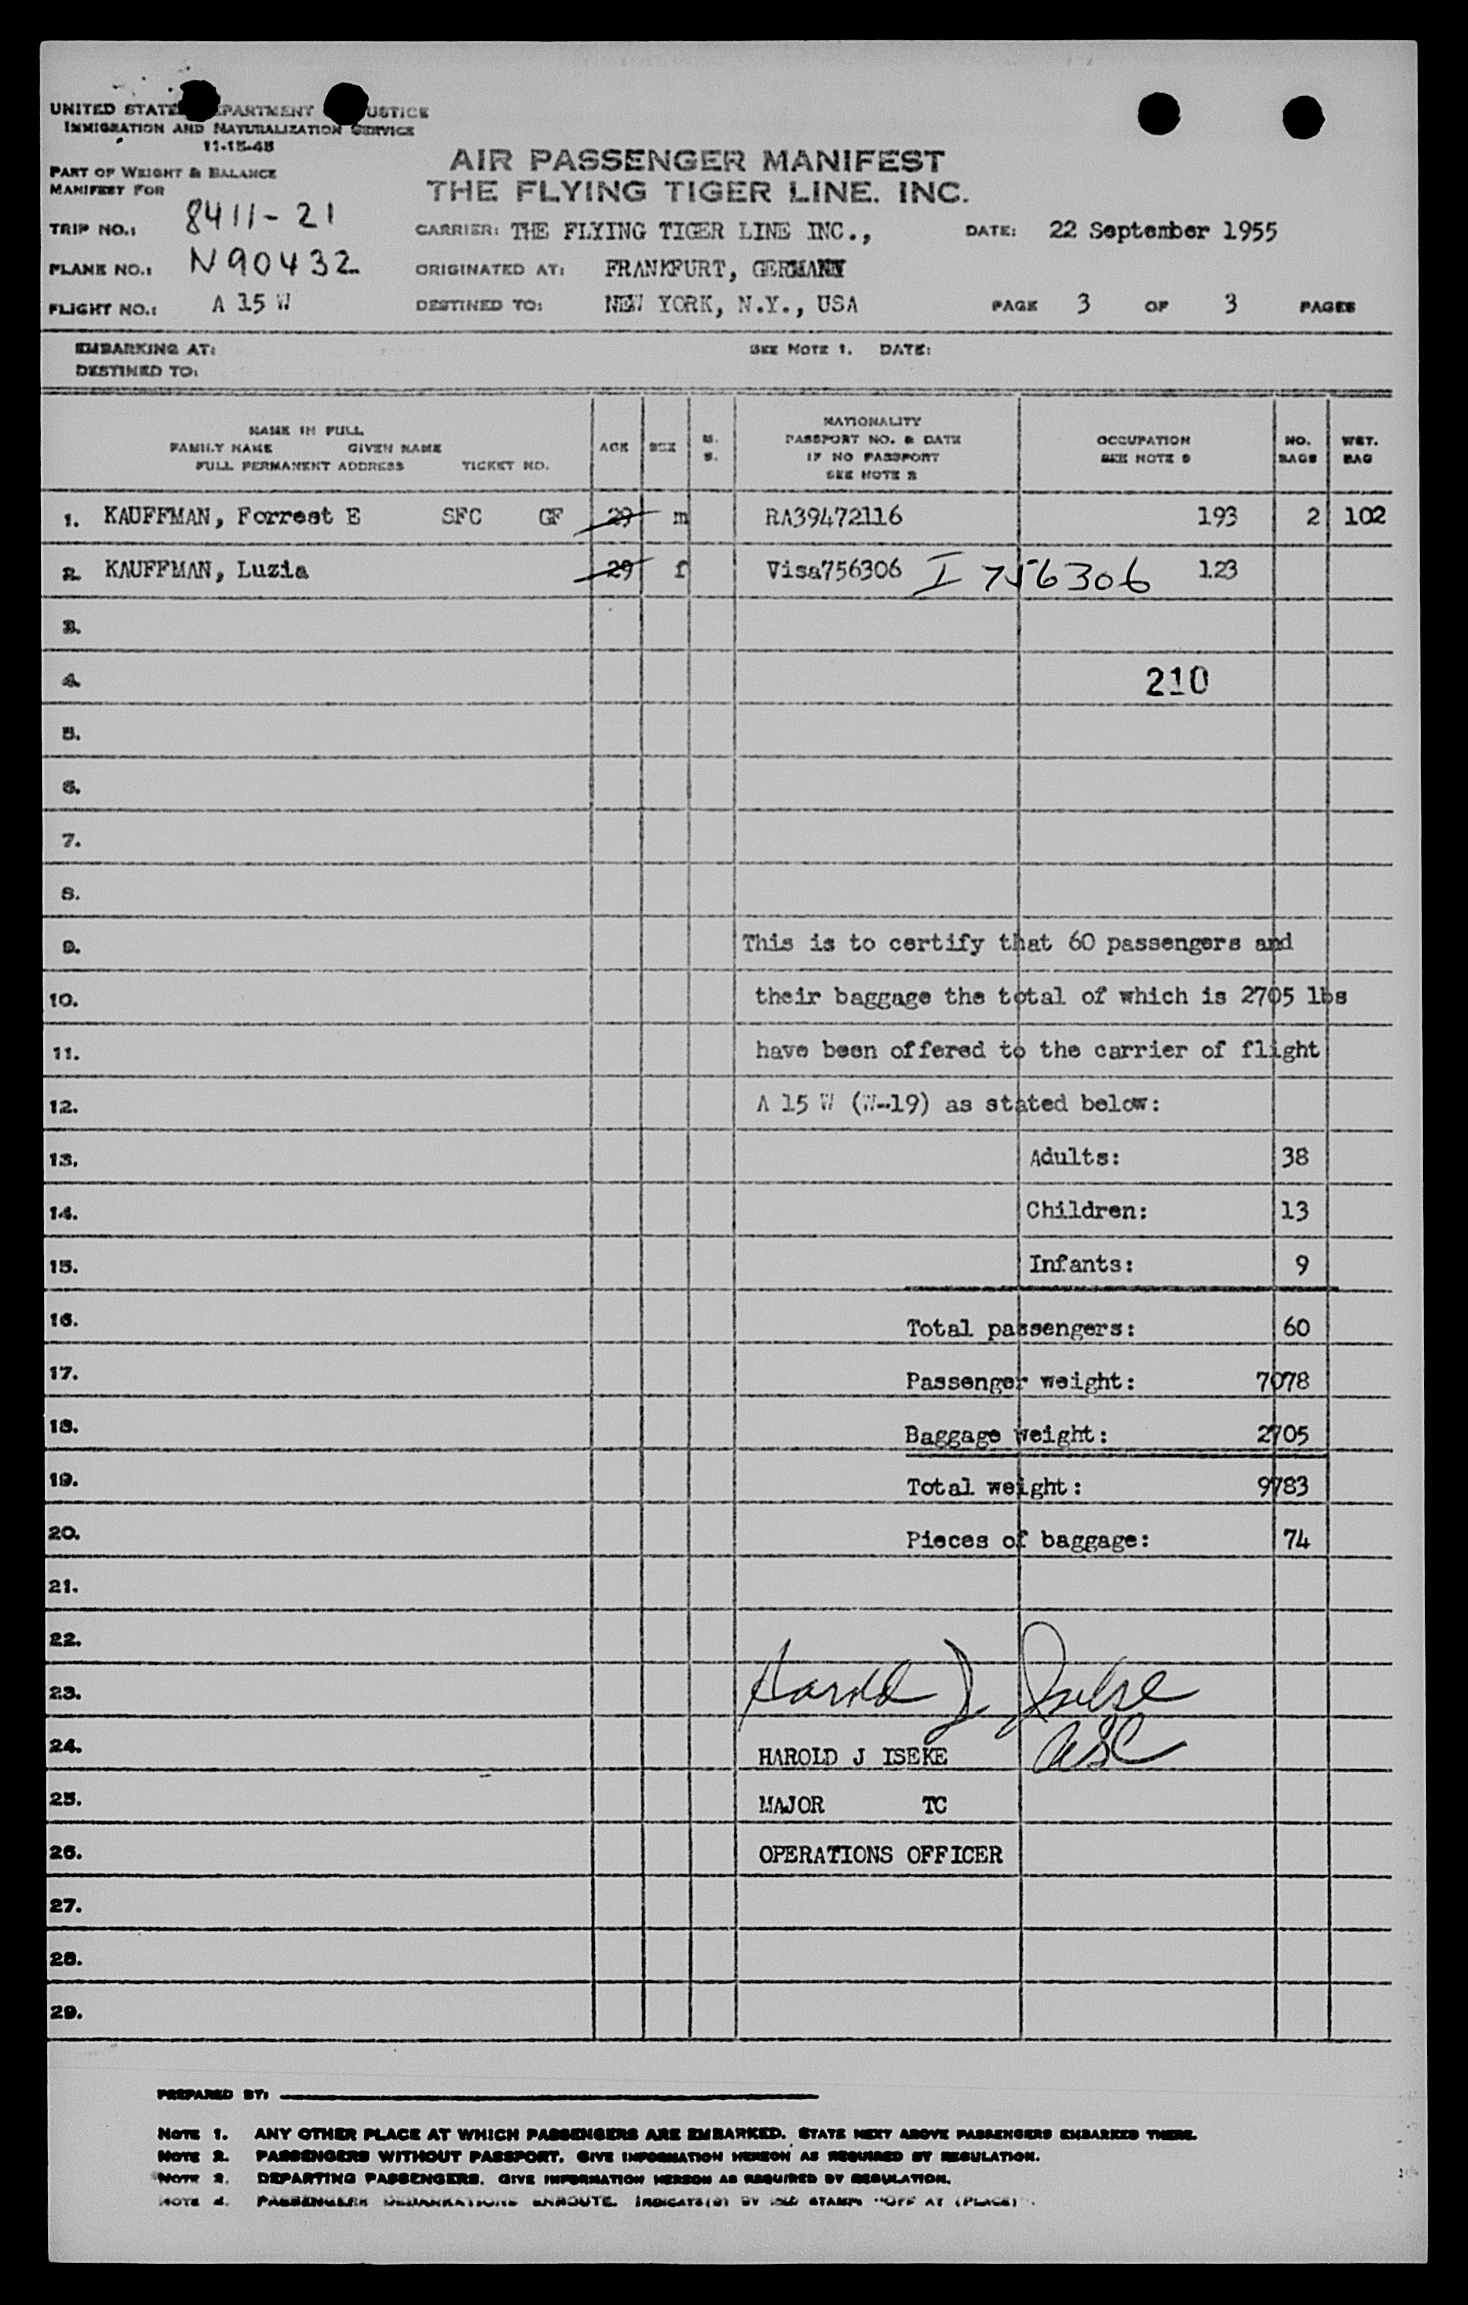 UNITED STATES DEPARTMENT OF JUSTICE
IMMIGRATION AND NATURALIZATION SERVICE
11-15-45
PART OF WEIGHT & BALANCE
MANIFEST FOR
AIR PASSENGER MANIFEST
THE FLYING TIGER LINE. INC.
TRIP NO.: 8411-21 CARRIER: THE FLYING TIGER LINE INC., DATE: 22 September 1955
PLANE NO.: N90432 ORIGINATED AT: FRANKFURT, GERMANY
FLIGHT NO.: A 15 W DESTINED TO: NEW YORK, N.Y., USA PAGE 3 OF 3 PAGES
EMBARKING AT: SEE NOTE 1. DATE:
DESTINED TO:
NAME IN FULL
FAMILY NAME GIVEN NAME
FULL PERMANENT ADDRESS TICKET NO.
AGE
SEX
M.
S.
NATIONALITY
PASSPORT NO. & DATE
IF NO PASSPORT
SEE NOTE 2
OCCUPATION
SEE NOTE 3
NO.
BAGS
WGT.
BAG
1. KAUFFMAN, Forrest E SFC GF 29 m RA39472116 193 2 102
2. KAUFFMAN, Luzia 29 f Visa756306 I 756306 123
3.
4. 210
5.
6.
7.
8.
9. This is to certify that 60 passengers and
10. their baggage the total of which is 2705 lbs
11. have been offered to the carrier of flight
12. A 15 W (W-19) as stated below:
13. Adults: 38
14. Children: 13
15. Infants: 9
16. Total passengers: 60
17. Passenger weight: 7078
18. Baggage weight: 2705
19. Total weight: 9783
20. Pieces of baggage: 74
21.
22.
23. Harold J Iseke
24. HAROLD J ISEKE
25. MAJOR TC
26. OPERATIONS OFFICER
27.
28.
29.
PREPARED BY:
NOTE 1. ANY OTHER PLACE AT WHICH PASSENGERS ARE EMBARKED. STATE NEXT ABOVE PASSENGERS EMBARKED THERE.
NOTE 2. PASSENGERS WITHOUT PASSPORT. GIVE INFORMATION HEREON AS REQUIRED BY REGULATION.
NOTE 3. DEPARTING PASSENGERS. GIVE INFORMATION HEREON AS REQUIRED BY REGULATION.
NOTE 4. PASSENGERS DEBARKATIONS ENROUTE. INDICATE(D) BY STAMP "OFF AT (PLACE)".